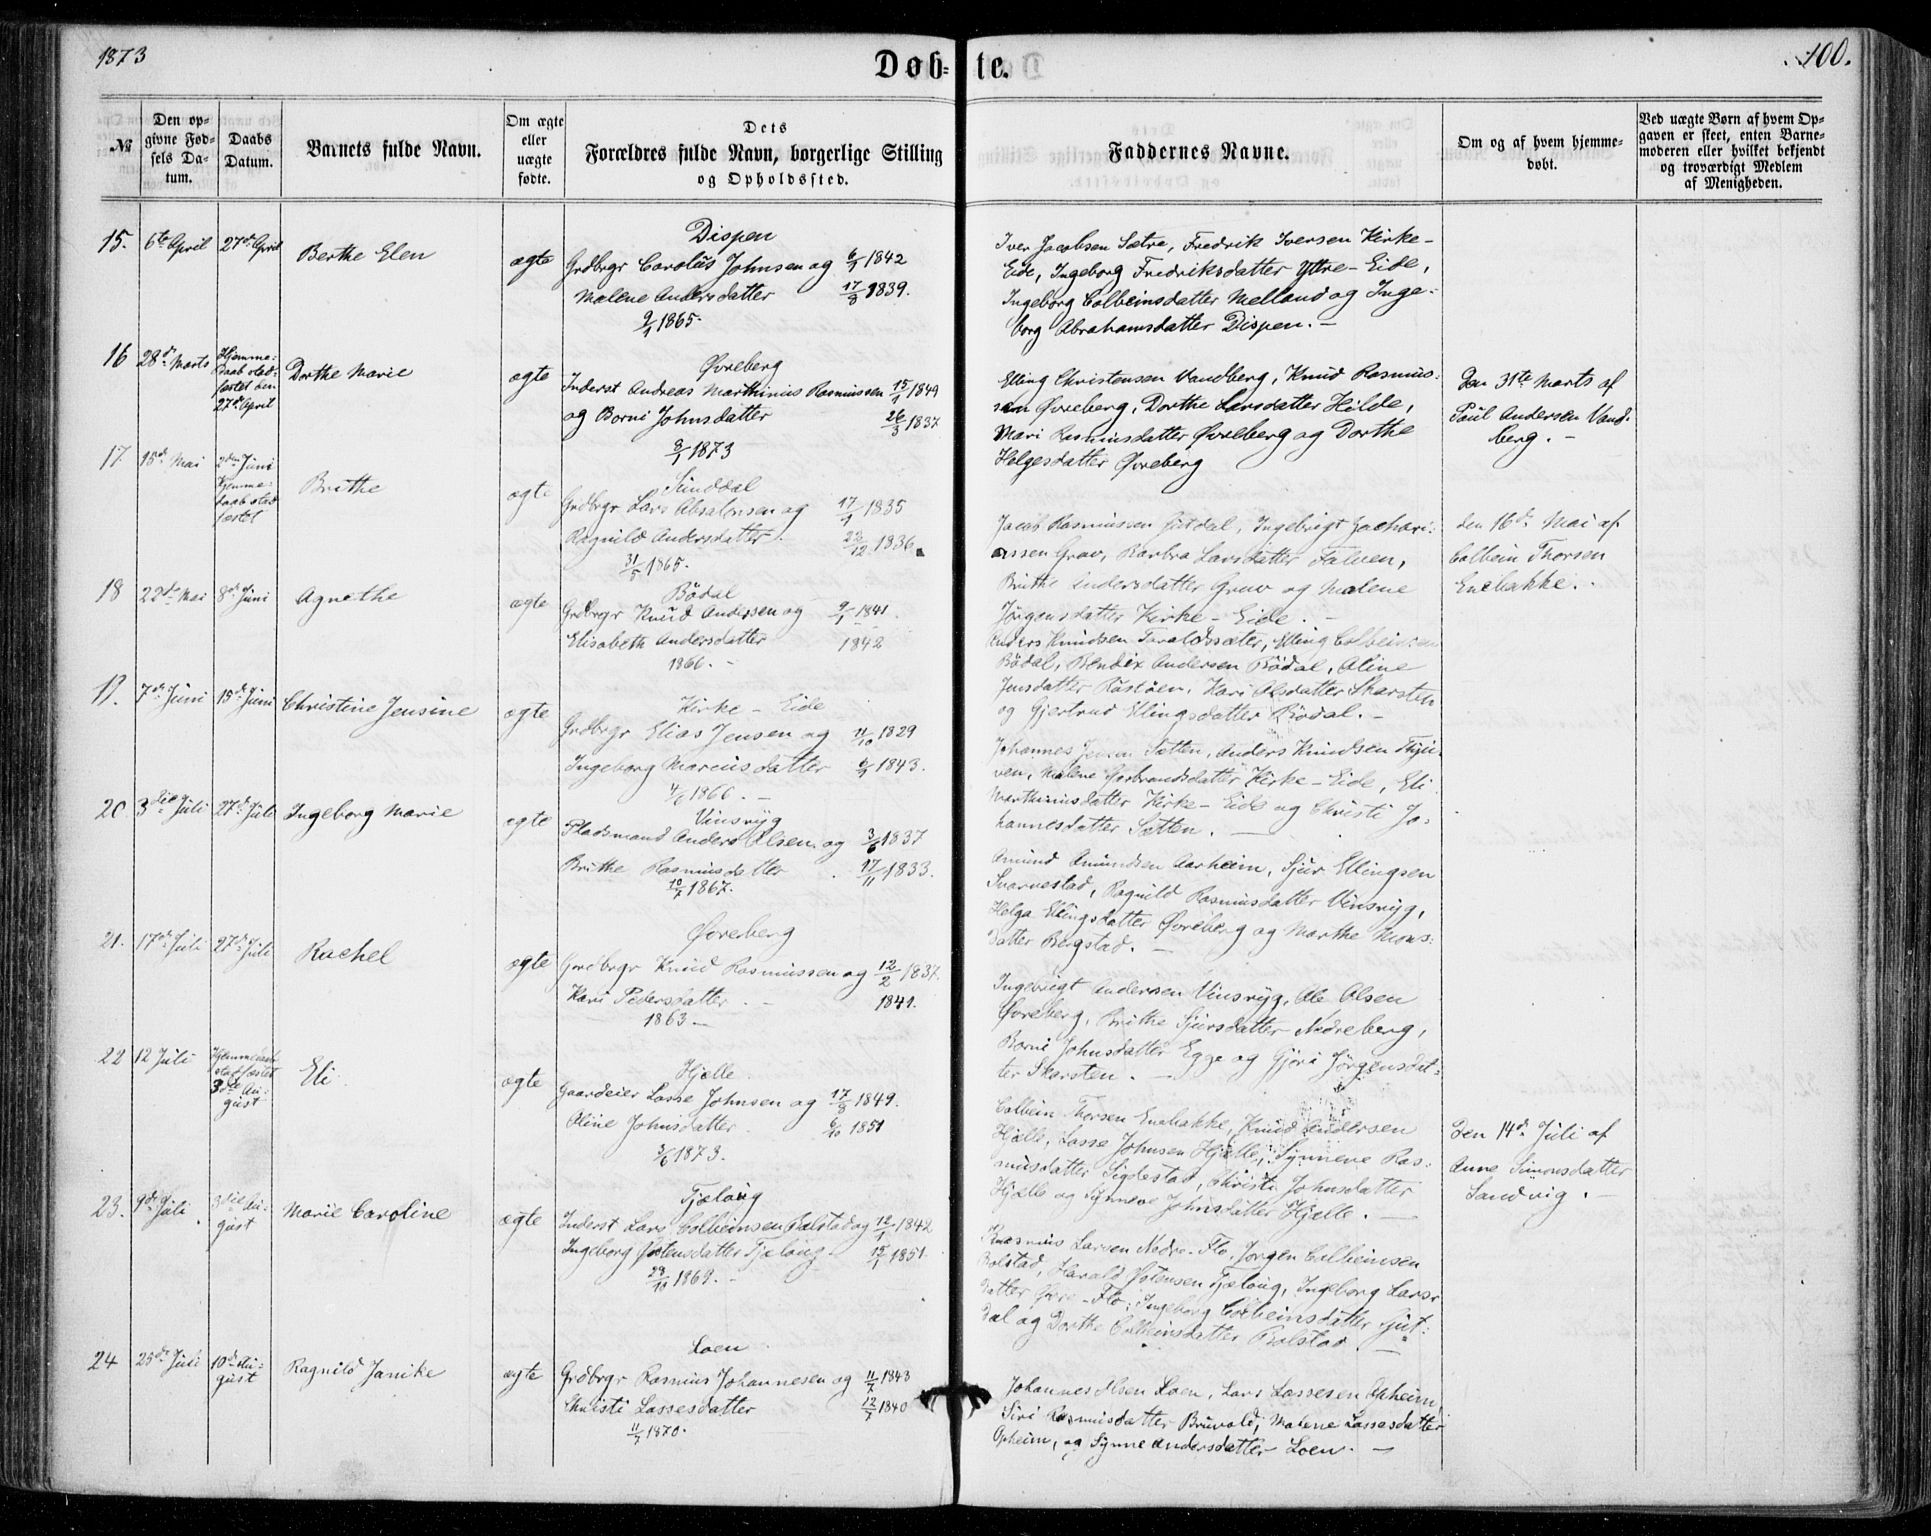 1873
Døb-
te.
100.
№
Den op-
givne Fød-
sels Da-
tum.
Daabs
Datum.
Barnets fulde Navn.
Om ægte
eller
uægte
fødte.
Dets
Forældres fulde Navn, borgerlige Stilling
og Opholdssted.
Faddernes Navne.
Om og af hvem hjemme-
døbt.
Ved uægte Børn af hvem Op-
gaven er skeet, enten Barne-
moderen eller hvilket bekjendt
og troværdigt Medlem
af Menigheden.
15. 6te April 27d April Berthe Elen ægte
Dispen
Grdbrgr Carolus Johnsen og 6/1 1842
Malene Andersdatter 17/8 1839.
9/1 1865.
Iver Jacobsen Sætre, Fredrik Iversen Kirke-
Eide, Ingeborg Fredriksdatter Yttre-Eide,
Ingeborg Colbeinsdatter Melland og Inge-
borg Abrahamsdatter Dispen. -
16 28d Marts
Hjemme-
Daab stad-
fæstet den
27d April
Dorthe Marie ægte
Øvreberg
Inderst Andreas Marthinius Rasmussen 15/1 1849
og Borni Johnsdatter 26/3 1837
3/1 1873
Elling Christensen Vandberg, Knud Rasmus-
sen Øvreberg, Dorthe Larsdatter Hilde,
Mari Rasmusdatter Øvreberg og Dorthe
Helgesdatter Øvreberg
Den 31te Marts af
Paul Andersen Vand-
berg. -
17 15d Mai
2den Juni
Hjemme-
daab stad
fæstet
Brithe ægte
Sunddal
Grdbrgr Lars Absalonsen og 17/1 1835
Ragnild Andersdatter 22/12 1836.
31/5 1865.
Jacob Rasmussen Gutdal, Ingebrigt Zachari-
assen Grav, Barbra Larsdatter
Brithe Andersdatter Grav og Malene
Jørgensdatter Kirke-Eide. -
den 16d Mai af
Colbein Thorsen
Enebakke.
18 22de Mai 8de Juni Agnethe ægte
Bødal
Grdbrgr Knud Andersen og 9/1 1841.
Elisabeth Andersdatter 1842
1866. -
Anders Knudsen Taraldssæter, Elling Colbeinsen
Bødal, Bendix Andersen Bødal, Aline
Jensdatter Rastøen, Kari Olsdatter Skarsten
og Gjertrud Ellingsdatter Bødal. -
19. 7de Juni 15de Juni Christine Jensine ægte
Kirke-Eide
Grdbrgr Elias Jensen og 11/10 1829
Ingeborg Marcusdatter 6/9 1843.
1866. -
Johannes Jensen Sætten, Anders Knudsen
ven, Malene Gerbrandsdatter Kirke-Eide, Eli
Marthinusdatter Kirke-Eide og Christi Jo-
hannesdatter Sætten. -
20 3die Juli 27de Juli Ingeborg Marie ægte
Vinsryg
Pladsmand Anders Olsen og 3/6 1837
Brithe Rasmusdatter 17/11 1833.
10/7 1867.
Amund Amundsen Aarheim, Sjur Ellingsen
Svarnestad, Ragnild Rasmusdatter Vinsryg,
Helga Ellingsdatter Øvreberg og Marthe Mons-
datter Bergstad. -
21. 17de Juli 27de Juli Rachel ægte
Øvreberg
Gardbrgr Knud Rasmussen og 12/2 1837.
Kari Pedersdatter. - 1841.
1863 -
Ingebrigt Andersen Vinsryg, Ole Olsen
Øvreberg, Brithe Sjursdatter Nedreberg,
Borni Johnsdatter Egge og Gjøri Jørgensdat-
ter Skarsten. -
22 12 Juli
Hjemmedaab
stadfæstet
3die Au-
gust
Eli ægte
Hjelle
Gaardeier Lasse Johnsen og 17/8 1849.
Oline Johnsdatter 6/10 1851
3/6 1873.
Colbein Thorsen Enebakke, Knud Andersen
Hjelle, Lasse Johnsen Hjelle, Synneve Ras-
musdatter Sigdestad, Christi Johnsdatter
Hjelle og Synneve Johnsdatter Hjelle. -
Den 14de Juli af
Anne Simonsdatter
Sandvig. -
23. 9de Juli
3die Au-
gust
Marie Caroline ægte
Tjelaug
Inderst Lars Colbeinsen Bolstad og 12/1 1842
Ingeborg Østensdatter Tjelaug 15/1 1851.
23/10 1869. -
Rasmus Larsen Nedre-Flo, Jørgen Colbeinsen
Bolstad, Harald Østensen Tjelaug, Ingeborg Lars-
datter Øvre-Flo, Ingeborg Colbeinsdatter Gut-
dal og Dorthe Colbeinsdatter Bolstad -
24 25de Juli
10de Au-
gust
Ragnild Janike ægte
Loen
Grdbrgr Rasmus Johannesen og 11/7 1843
Christi Lassesdatter 12/7 1840
11/7 1870.
Johannes Olsen Loen, Lars Lassesen Opheim,
Siri Rasmusdatter Bruvold, Malene Lassesdatter
Opheim, og Synne Andersdatter Loen. -